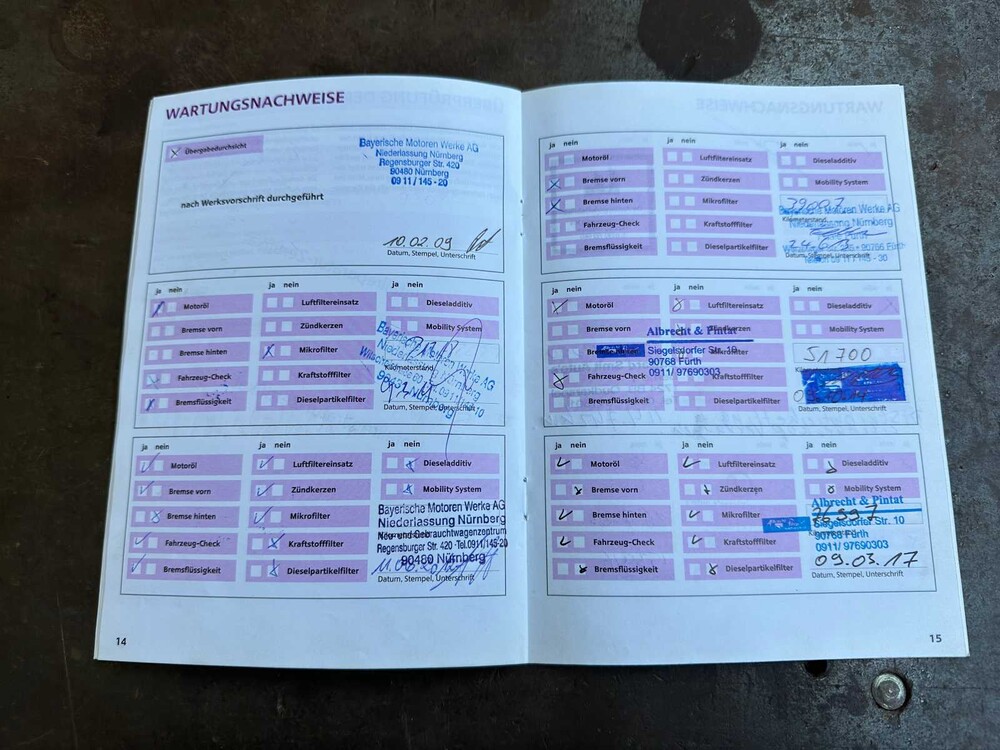 WARTUNGSNACHWEISE
Übergabedurchsicht
Bayerische Motoren Werke AG
Niederlassung Nürnberg
Regensburger Str. 420
90480 Nürnberg
0911 / 145 - 20
nach Werksvorschrift durchgeführt
10.02.09
Datum, Stempel, Unterschrift
ja nein
ja nein
ja nein
Motoröl
Luftfiltereinsatz
Dieseladditiv
Bremse vorn
Zündkerzen
Mobility System
Bremse hinten
Mikrofilter
Kilometerstand
Fahrzeug-Check
Kraftstofffilter
Bremsflüssigkeit
Dieselpartikelfilter
Bayerische Motoren Werke AG
Niederlassung Nürnberg
Datum, Stempel, Unterschrift
ja nein
ja nein
ja nein
Motoröl
Luftfiltereinsatz
Dieseladditiv
Bremse vorn
Zündkerzen
Mobility System
Bremse hinten
Mikrofilter
Fahrzeug-Check
Kraftstofffilter
Bremsflüssigkeit
Dieselpartikelfilter
Bayerische Motoren Werke AG
Niederlassung Nürnberg
Neu- und Gebrauchtwagenzentrum
Regensburger Str. 420 · Tel. 0911/145-20
90480 Nürnberg
Datum, Stempel, Unterschrift
14
ja nein
ja nein
ja nein
Motoröl
Luftfiltereinsatz
Dieseladditiv
Bremse vorn
Zündkerzen
Mobility System
Bremse hinten
Mikrofilter
39007
Kilometerstand
Fahrzeug-Check
Kraftstofffilter
Bremsflüssigkeit
Dieselpartikelfilter
Bayerische Motoren Werke AG
Niederlassung Nürnberg
90766 Fürth
Datum, Stempel, Unterschrift
ja nein
ja nein
ja nein
Motoröl
Luftfiltereinsatz
Dieseladditiv
Bremse vorn
Zündkerzen
Mobility System
Bremse hinten
Mikrofilter
51700
Fahrzeug-Check
Kraftstofffilter
Bremsflüssigkeit
Dieselpartikelfilter
Albrecht & Pintat
Siegelsdorfer Str. 10
90768 Fürth
0911/ 97690303
Datum, Stempel, Unterschrift
ja nein
ja nein
ja nein
Motoröl
Luftfiltereinsatz
Dieseladditiv
Bremse vorn
Zündkerzen
Mobility System
Bremse hinten
Mikrofilter
Fahrzeug-Check
Kraftstofffilter
Bremsflüssigkeit
Dieselpartikelfilter
Albrecht & Pintat
Siegelsdorfer Str. 10
90768 Fürth
0911/ 97690303
09.03.17
Datum, Stempel, Unterschrift
15